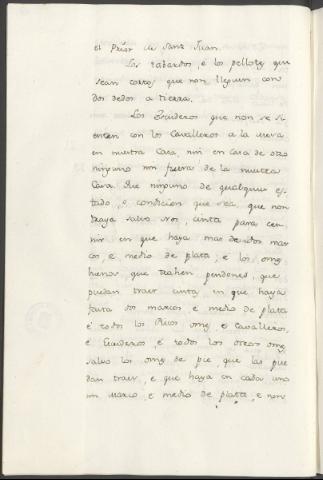 el Prior de Sant Juan.
Los tabardos, é los pellotes que
sean cortos, que non lleguen con
dos dedos a tierra.
Los Escuderos que non se si
enten con los Cavalleros a la mesa
en nuestra Casa, nin en Casa de otro
ninguno nin fuera de la nuestra
Casa. Que ninguno de qualquier es
tado, o condicion que sea, que non
traya salvo Nos, cinta para cen
nir en que haya mas de dos mar
cos e medio de plata; e los omes
buenos, que trahen pendones, que
puedan traer cinta en que haya
fasta dos marcos e medio de plata
é todos los Ricos omes, e Cavalleros,
é Escuderos é todos los otros omes,
salvo los omes de pie, que las pue
dan traer, e que haya en cada una
un marco, e medio de plata, e non